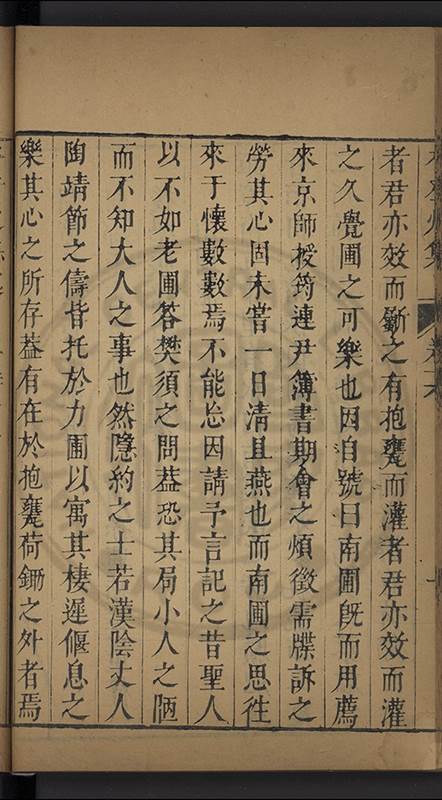 者君亦效而斸之有抱甕而灌者君亦效而灌
之久覺圃之可樂也因自號曰南圃旣而用薦
來京師授筠連尹簿書期會之煩徵需牒訴之
勞其心固未嘗一日淸且燕也而南圃之思徃
來于懷數數焉不能忘因請予言記之昔聖人
以不如老圃答樊須之問葢恐其局小人之陋
而不知大人之事也然隱約之士若漢陰丈人
陶靖節之儔皆托於力圃以寓其棲遲偃息之
樂其心之所存葢有在於抱甕荷鋤之外者焉